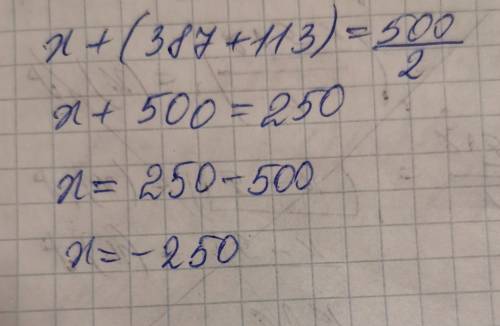 x + (387 + 113) = 500/2
x + 500 = 250
x = 250 - 500
x = - 250